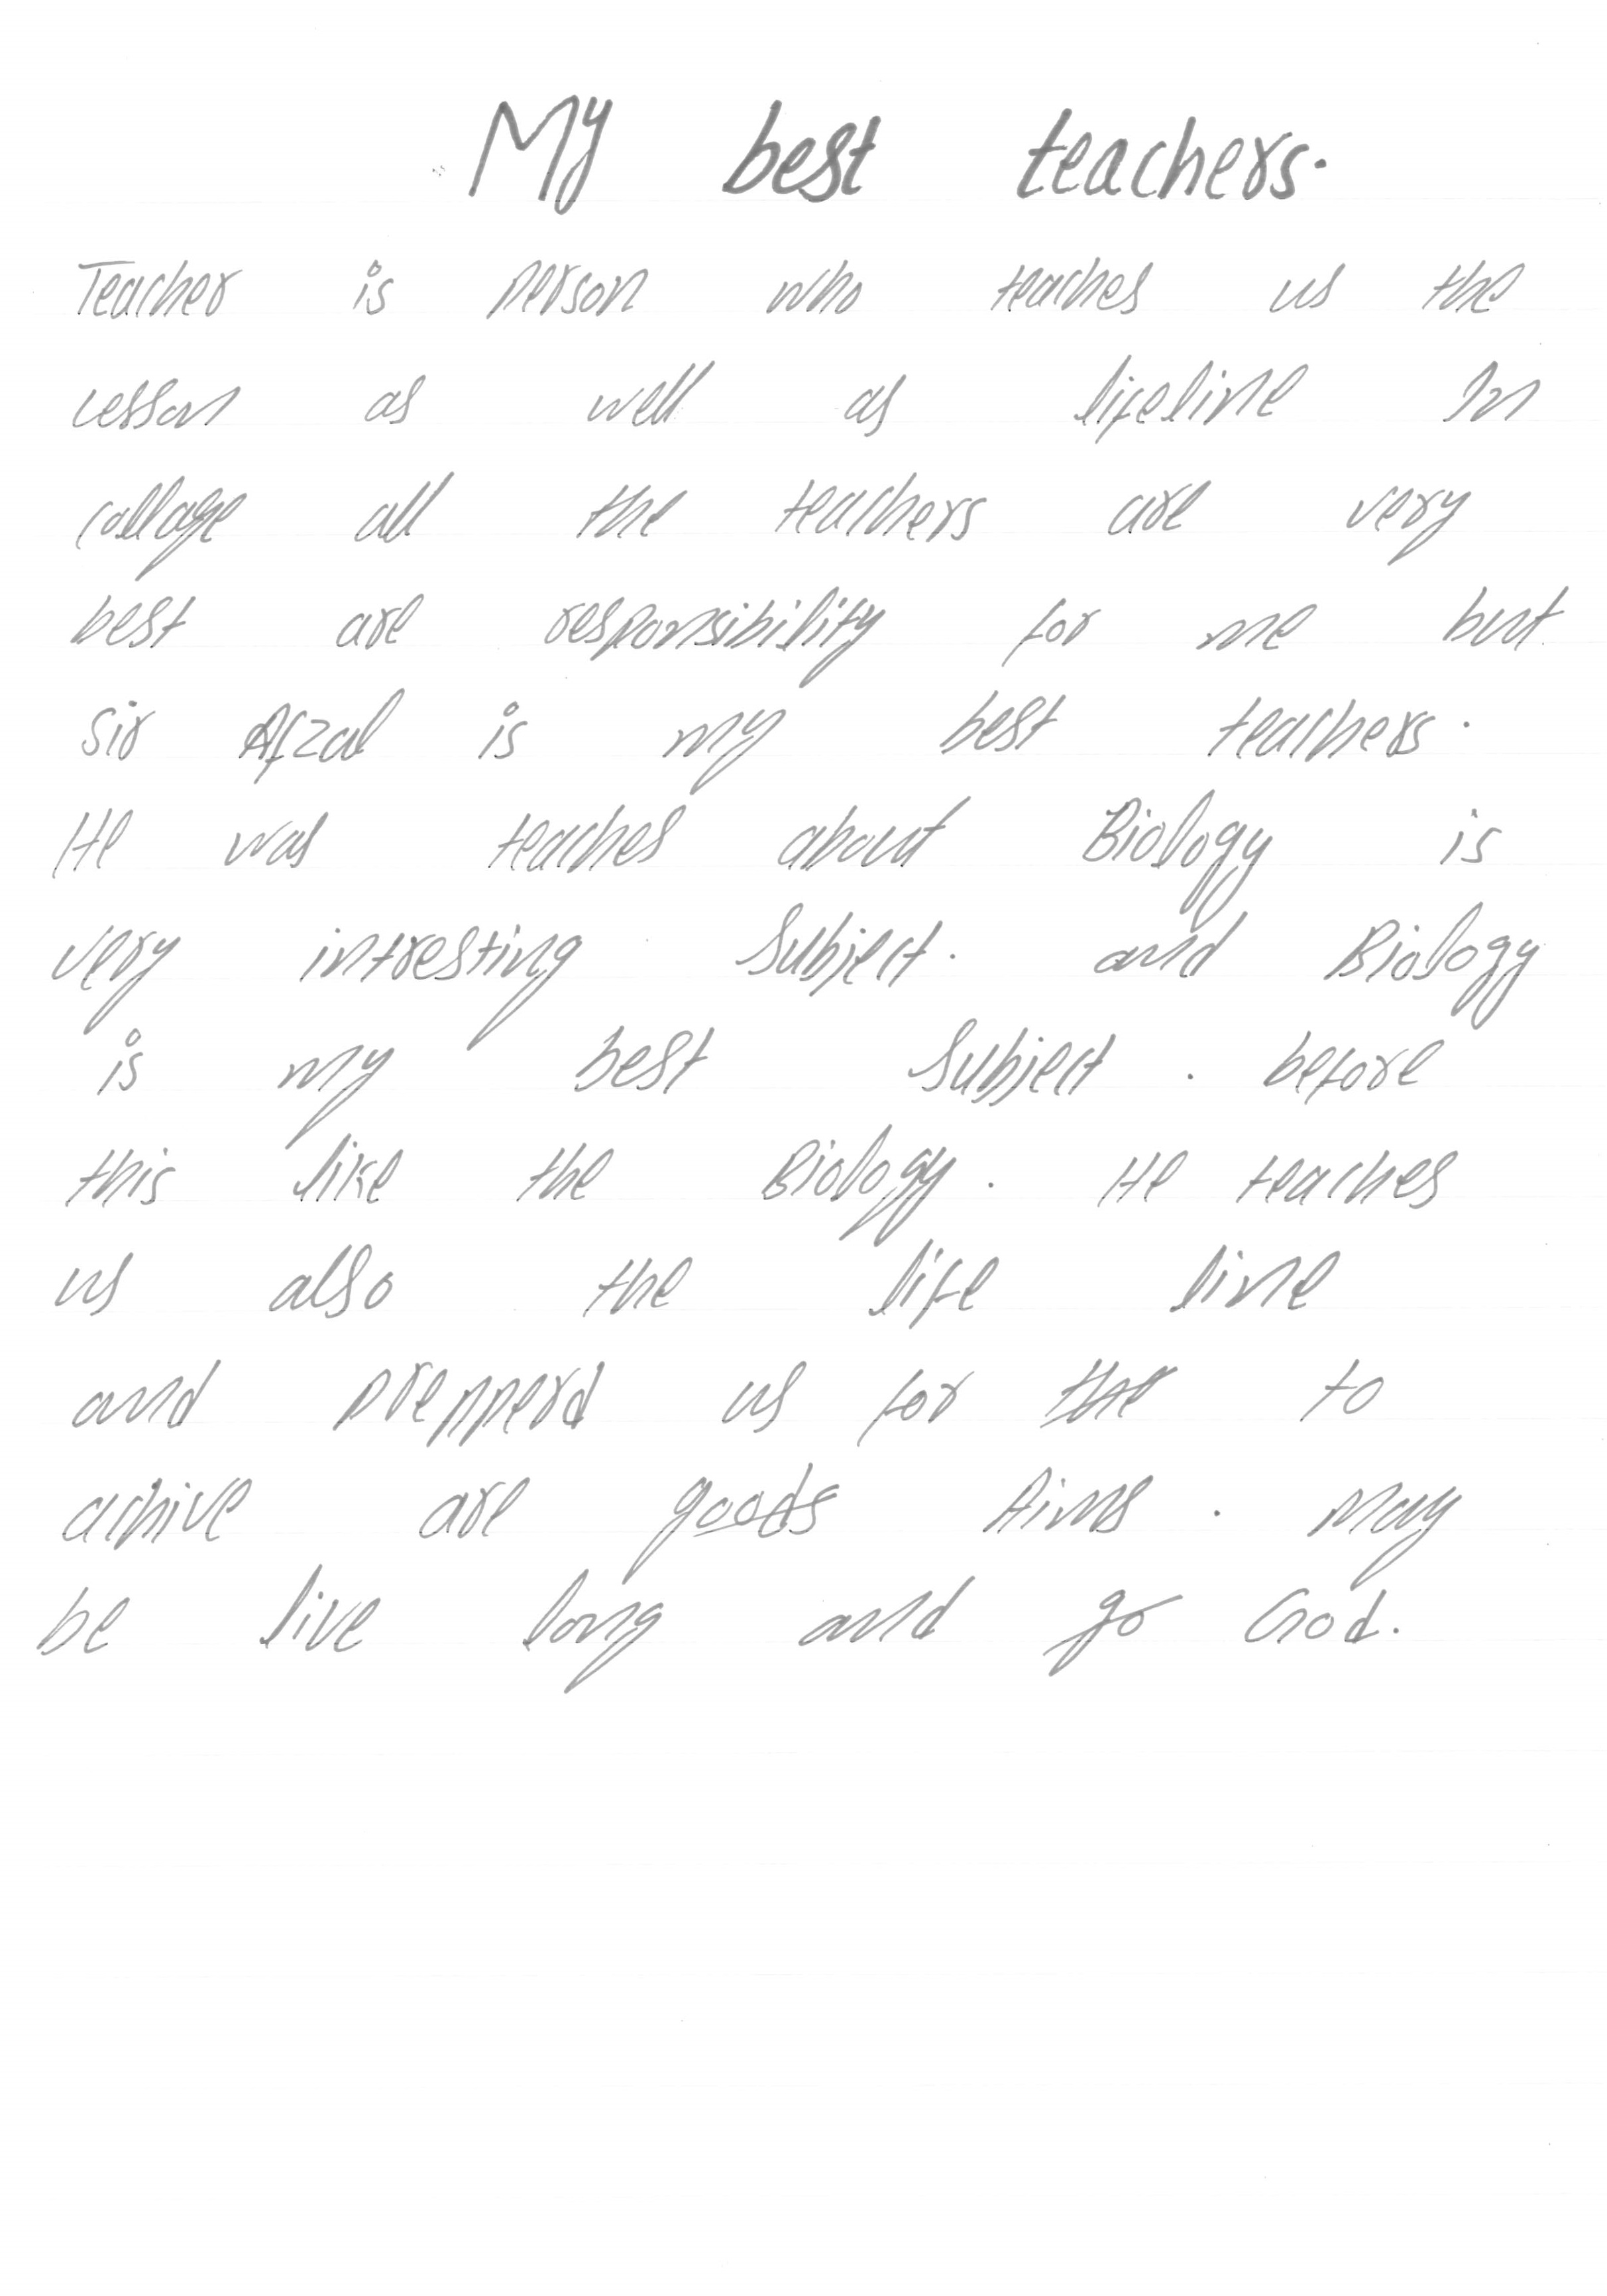 My best teachers.
Teacher is person who teaches us the
lesson as well as lifeline In
collage all the teachers are very
best are responsibility for me but
Sir Afzal is my best teachers.
He was teaches about Biology is
very intresting Subject. and Biology
is my best Subject. before
this like the Biology. He teaches
us also the life line
and prepperd us for the to
achive are goods Aims. May
be live long and go God.